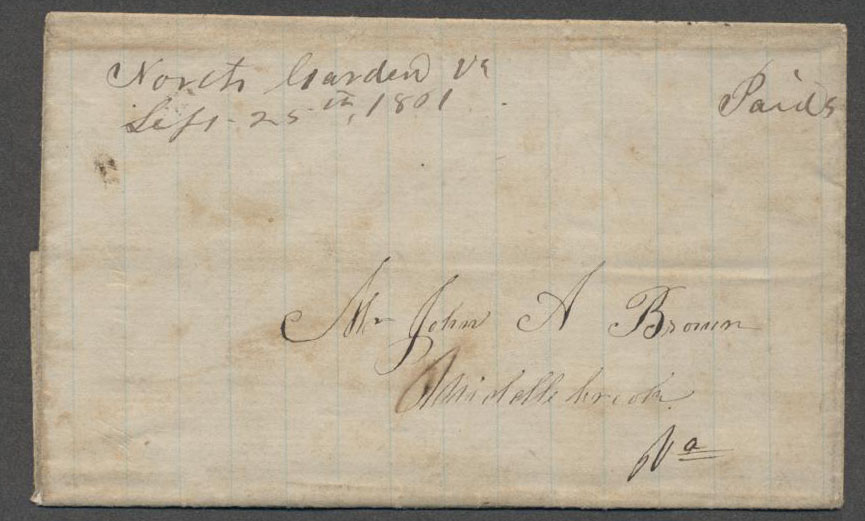 North Garden Va
Sept 25th, 1861
Paid 5
Mr John A Brown
Middlebrook
Va